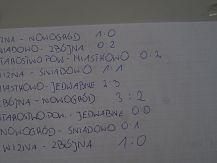 IZNA - NOWOGRÓD 1:0
ŚNIADOWO - ZBÓJNA 0:2
STAROSTWO POW. - MIASTKOWO 0:2
WIZNA - ŚNIADOWO 1:1
MIASTKOWO - JEDWABNE 2:3
ZBÓJNA - NOWOGRÓD 3:2
STAROSTWO POW. - JEDWABNE 0:0
NOWOGRÓD - ŚNIADOWO 0:1
WIZNA - ZBÓJNA 1:0